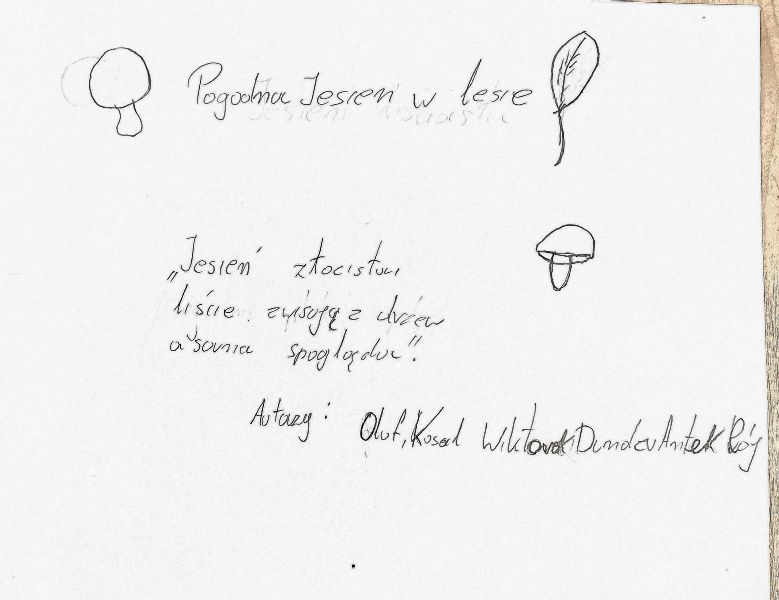 Pogodna Jesień w lesie
„Jesień złocista
liście zwisają z drzew
a sarna spogląda".
Autorzy: Olaf, Wiktor Antek Rój